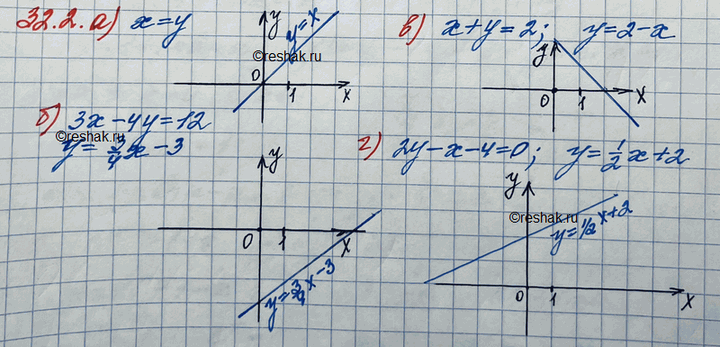 32.2. а) x=y
y
y=x
©reshak.ru
0
1
x
в) x+y=2; y=2-x
y
0
1
x
б) 3x-4y=12
©reshak.ru
y=3/4x-3
y
0
1
x
y=3/4x-3
г) 2y-x-4=0; y=1/2x+2
y
©reshak.ru
y=1/2x+2
0
1
x